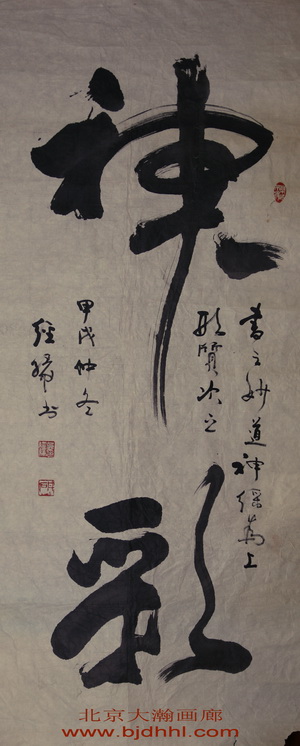 神彩
書之妙道神彩為上
形質次之
甲戌仲冬
北京大瀚画廊
www.bjdhhl.com